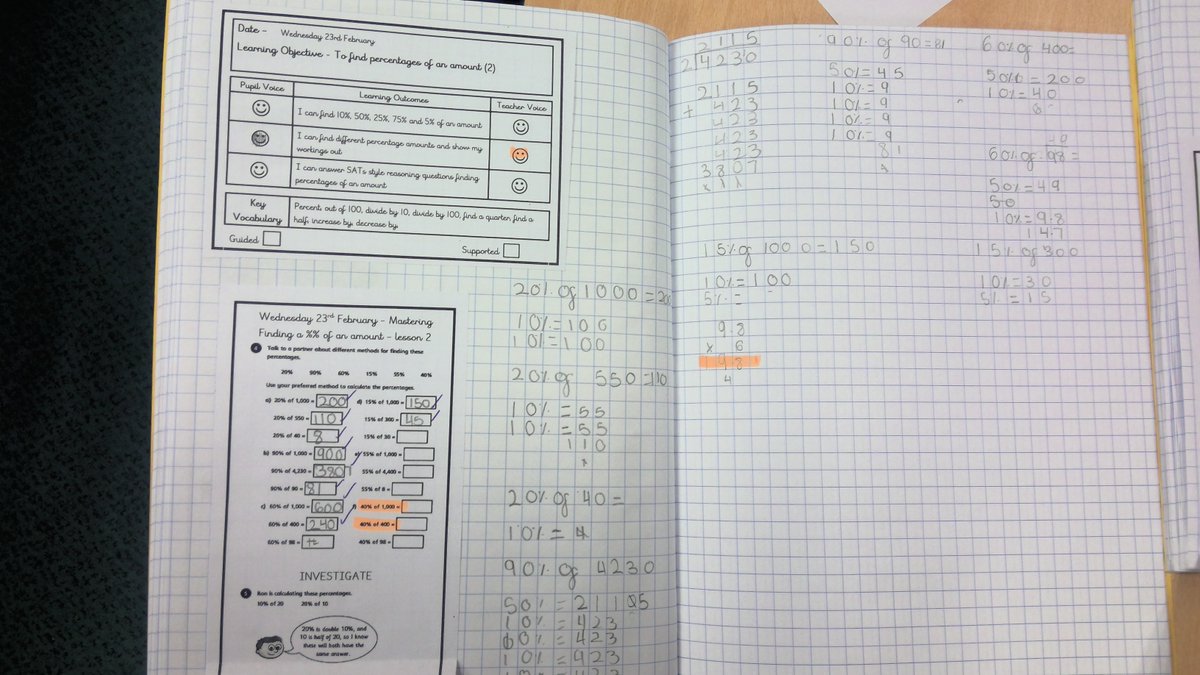 Date - Wednesday 23rd February
Learning Objective - To find percentages of an amount (2)
Pupil Voice
Learning Outcomes
Teacher Voice
I can find 10%, 50%, 25%, 75% and 5% of an amount
I can find different percentage amounts and show my
workings out
I can answer SATs style reasoning questions finding
percentages of an amount
Key
Vocabulary
Percent, out of 100, divide by 10, divide by 100, find a quarter, find a
half, increase by, decrease by,
Guided
Supported
Wednesday 23rd February - Mastering
Finding a %% of an amount - lesson 2
4 Talk to a partner about different methods for finding these
percentages.
20% 90% 60% 15% 55% 40%
Use your preferred method to calculate the percentages.
a) 20% of 1,000 = 200
20% of 550 = 110
20% of 40 = 8
b) 90% of 1,000 = 900
90% of 4,230 =
90% of 90 = 81
c) 60% of 1,000 = 600
60% of 400 = 240
60% of 98 =
d) 15% of 1,000 = 150
15% of 300 = 45
15% of 30 =
e) 55% of 1,000 =
55% of 4,400 =
55% of 8 =
f) 40% of 1,000 =
40% of 400 =
40% of 98 =
INVESTIGATE
5 Ron is calculating these percentages.
10% of 20 20% of 10
20% is double 10%, and
10 is half of 20, so I know
these will both have the
same answer.
20% of 1000 =
10% = 100
10% = 100
20% of 550 = 110
10% = 55
10% = 55
110
20% of 40 =
10% = 4
90% of 4230
50% =
10% = 423
10% = 423
10% = 423
2115
2 4230
2115
+ 423
423
423
423
3807
90% of 90 = 81
50% = 45
10% = 9
10% = 9
10% = 9
10% = 9
81
60% of 400 =
50% = 200
10% = 40
60% of 98 =
50% = 49
50
10% = 9.8
14.7
15% of 1000 = 150
10% = 100
5% =
15% of 300
10% = 30
5% = 15
9.8
x 6
9 8
4